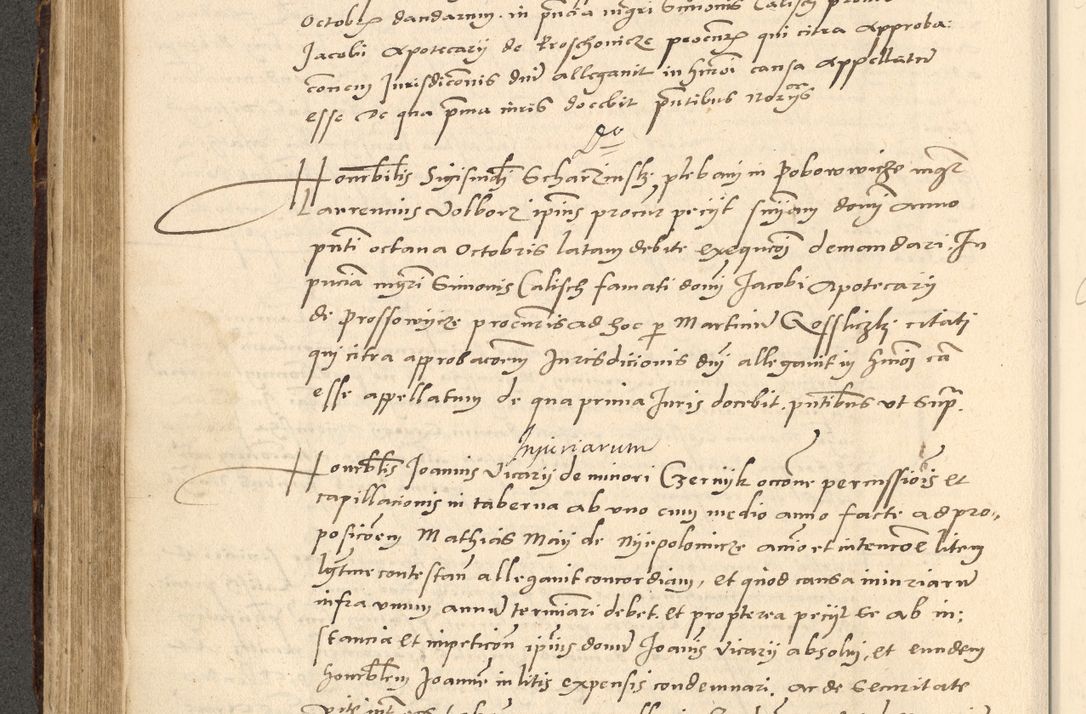 Octobr dandarum in pncia mgri Simonis Calisch
Jacobi Apotecarij de Proschovicze procurr qui citra approba:
conem Jurisdiconis dni allegavit in hmoi causa appellatu
esse De qua prima iuris docebit pntibus Norijs
Do
Honrbilis Sigismdi Scharzinski plebani in Poborowicze mgr
Laurencius Volborz ipius procur pecijt snijam domi Anno
pnti octava Octobris latam debite exequcoi demandari. In
pncia mgri Simonis Calisch famati domi Jacobi Apotecarij
de Prossowicze procuris ad hoc p Martinu Gossliczki citati
qui citra approbacoem Jurisdicionis dni allegavit in hmoi ca
esse appellatum de qua prima Juris docebit. pntibus ut Sup.
Injuriarum
Honrblis Joannis Vicarij de minori Czernijk occone percussiois et
capillacionis in taberna ab uno cum medio anno facte ad pro-
posicoem Mathias Maij de Nijepolomicze anio et intencoe litem
lgtme contestan allegavit concordiam, Et quod causa iniuriaru
infra unum annu terminari debet. Et propterea pecijt se ab in:
stancia Et impeticon ipius domi Joanis Vicarij absolvi, et eundem
honrblem Joanne in litis expensis condemnari. Ac de Securitate